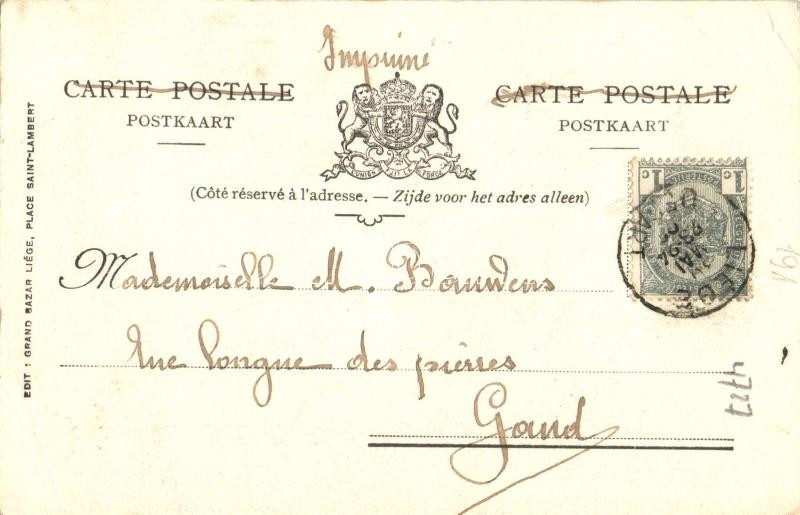 Imprimé
CARTE POSTALE
POSTKAART
CARTE POSTALE
POSTKAART
L'UNION FAIT LA FORCE
(Côté réservé à l'adresse. — Zijde voor het adres alleen)
1c 1c
Mademoiselle M. Bauwens
rue longue des pièrres
Gand
EDIT : GRAND BAZAR LIÉGE, PLACE SAINT-LAMBERT
191